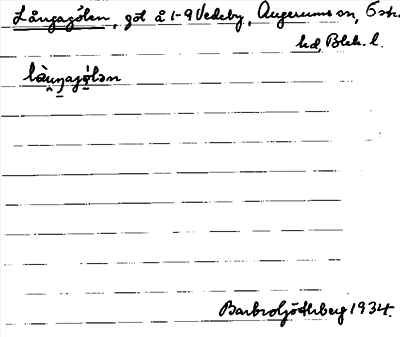 Långagölen, göl å 1-9 Vedeby, Augerums sn, Östra
hd, Blek. l.
làu̯ŋagö́lən
Barbro Göthberg 1934.